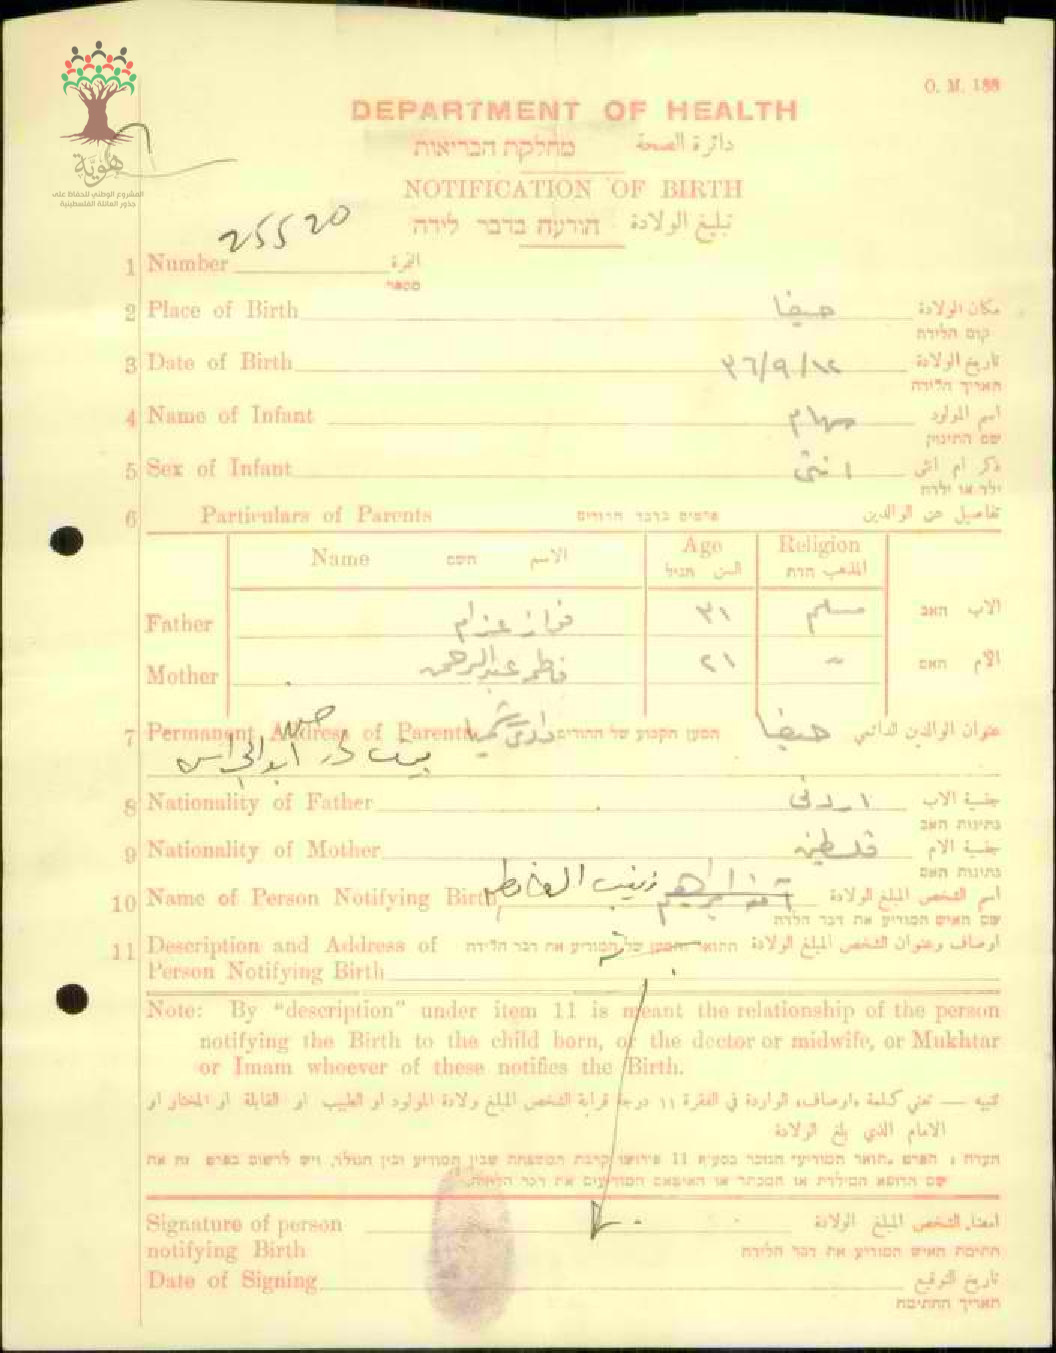 O. M. 188
هوية
المشروع الوطني للحفاظ على
جذور العائلة الفلسطينية
DEPARTMENT OF HEALTH
מחלקת הבריאות دائرة الصحة
NOTIFICATION OF BIRTH
הודעה בדבר לידה تبليغ الولادة
25520
1 Number النمرة
מספר
2 Place of Birth حيفا مكان الولادة
קום הלידה
3 Date of Birth ٣٦/٩/١٢ تاريخ الولادة
תאריך הלידה
4 Name of Infant سهام اسم المولود
שם התינוק
5 Sex of Infant انثى ذكر ام انثى
ילד או ילדה
6 Particulars of Parents פרטים בדבר ההורים تفاصيل عن الوالدين
Name השם الاسم Age Religion
السن הגיל المذهب הדת
Father فواز عزام ٣١ مسلم الاب האב
Mother فاطمه عبدالرحمن ٢١ " الأم האם
7 Permanent Address of Parents המען הקבוע של ההורים حيفا عنوان الوالدين الدائمي
بيت
8 Nationality of Father اردني جنسية الاب
נתינות האב
9 Nationality of Mother فلسطين جنسية الام
נתינות האם
10 Name of Person Notifying Birth زينب اسم الشخص المبلغ الولادة
שם האיש המודיע את דבר הלדה
11 Description and Address of התואר והמען של המודיע את דבר הלידה اوصاف وعنوان الشخص المبلغ الولادة
Person Notifying Birth
Note: By "description" under item 11 is meant the relationship of the person
notifying the Birth to the child born, or the doctor or midwife, or Mukhtar
or Imam whoever of these notifies the Birth.
تنبيه — تعني كلمة «اوصاف» الواردة في الفقرة ١١ درجة قرابة الشخص المبلغ ولادة المولود او الطبيب او القابلة او المختار او
الامام الذي بلغ الولادة
הערה : הפרט .תואר המודיע׳ הנזכר בסעיף 11 פירושו קרבת המשפחה שבין המודיע ובין הנולד, ויש לרשום בפרט זה את
שם הרופא המילדת או המכתר או האימאם המודיעים את דבר הלידה.
Signature of person امضاء الشخص المبلغ الولادة
notifying Birth חתימת האיש המודיע את דבר הלידה
Date of Signing تاريخ التوقيع
תאריך החתימה